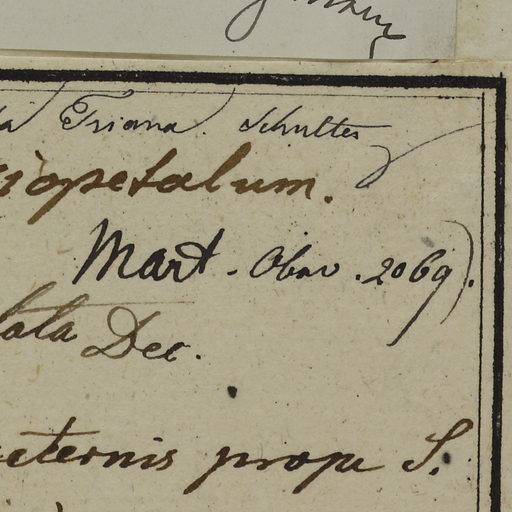 Triana. Schultes
iopetalum.
Mart. Obsv. 2069).
lata Dec.
aeternis prope S.